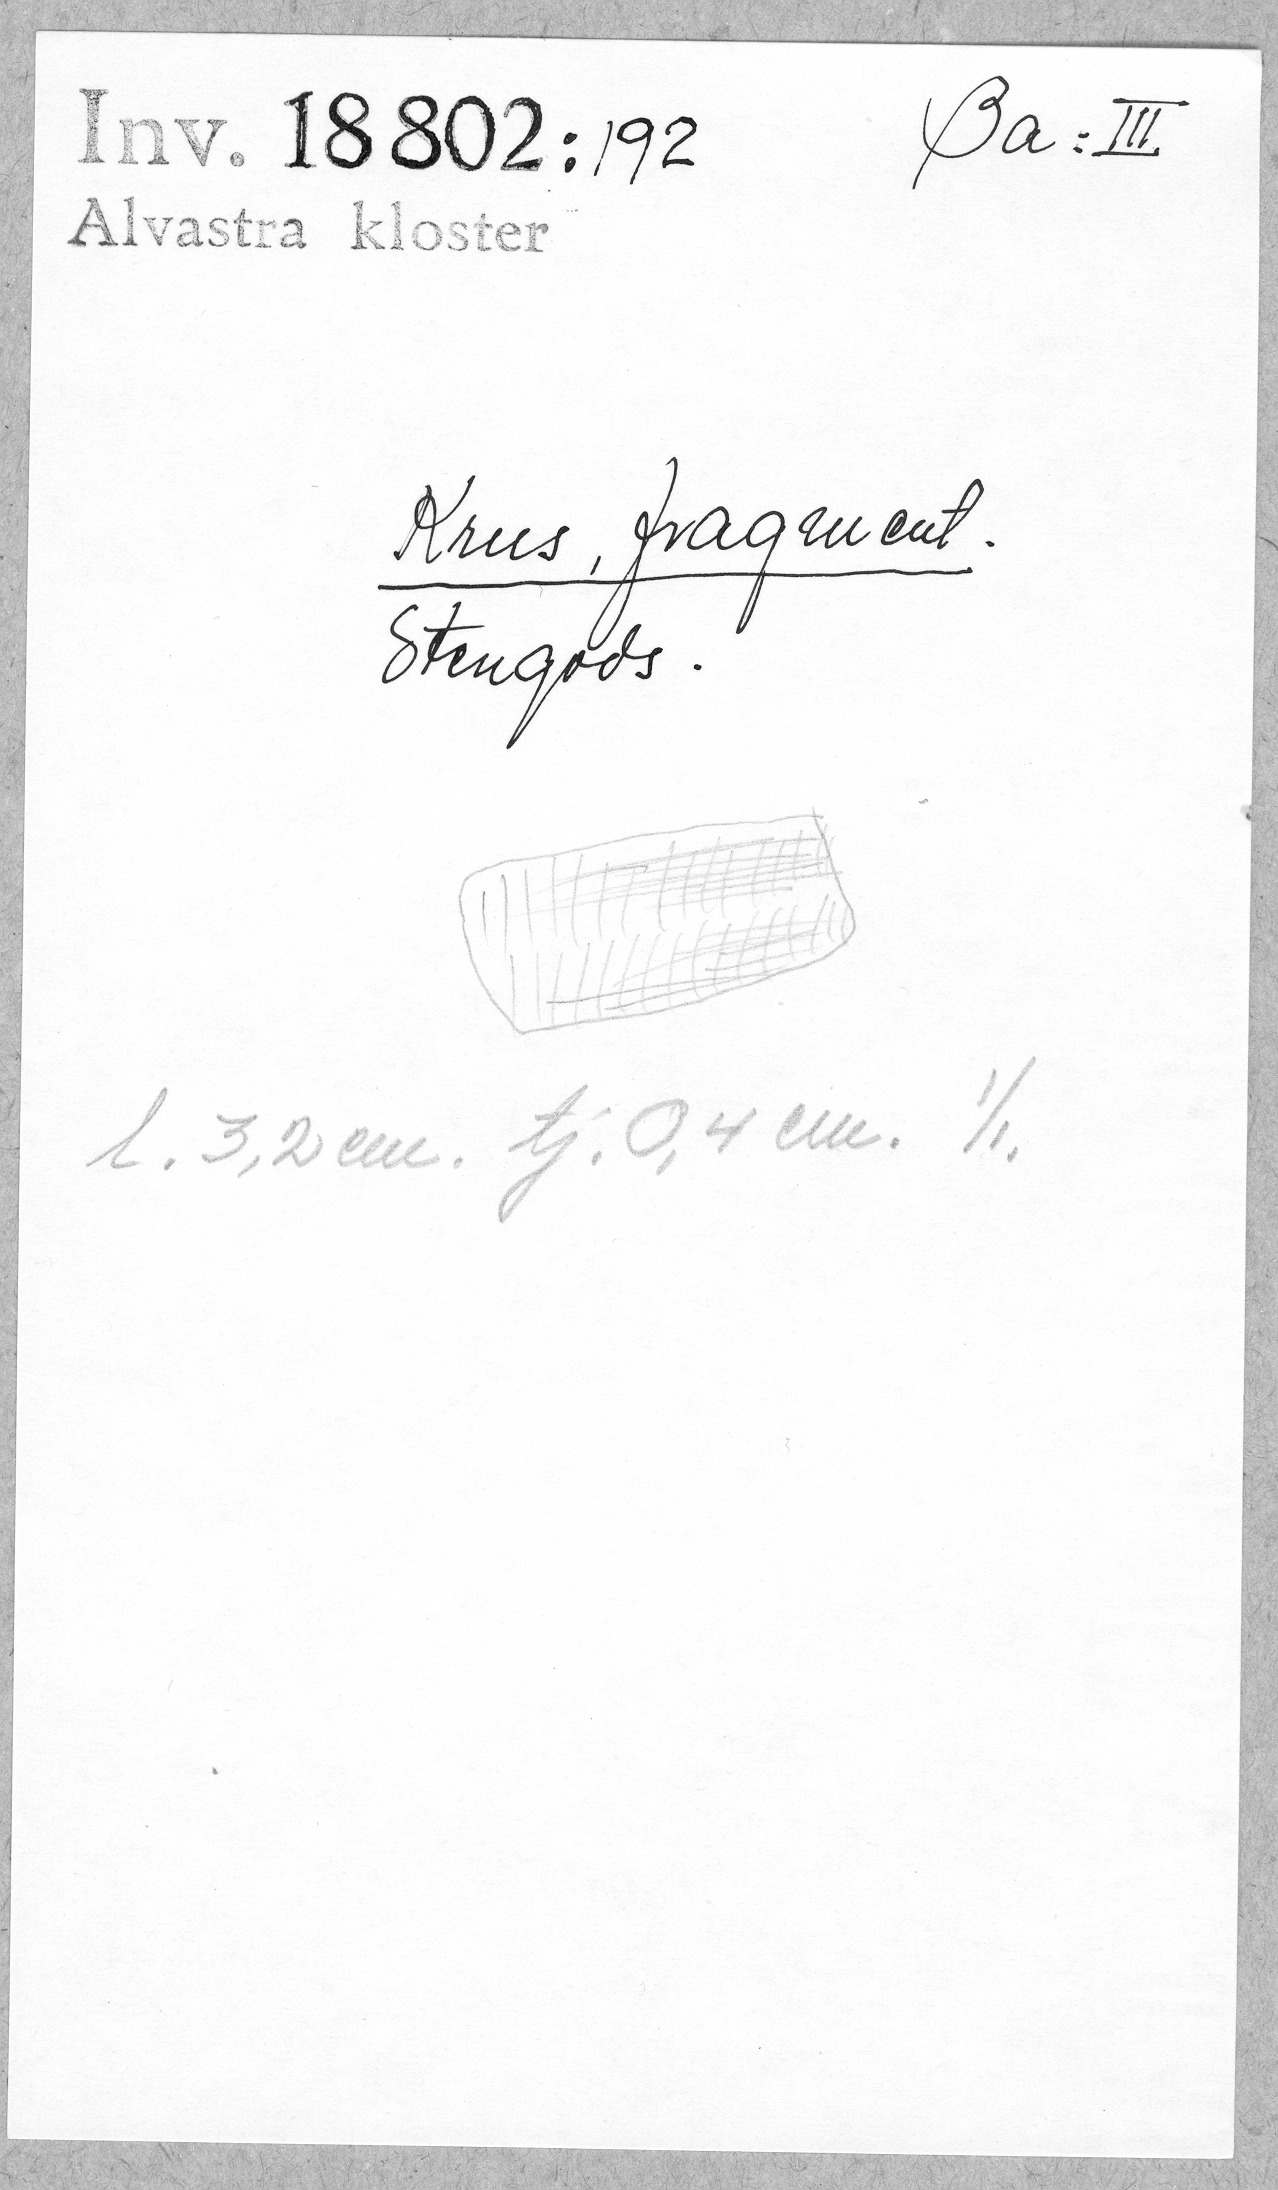 Inv. 18802:192
Ba:III
Alvastra kloster
Krus, fragment.
Stengods.
l. 3,2 cm. tj. 0,4 cm. 1/1.